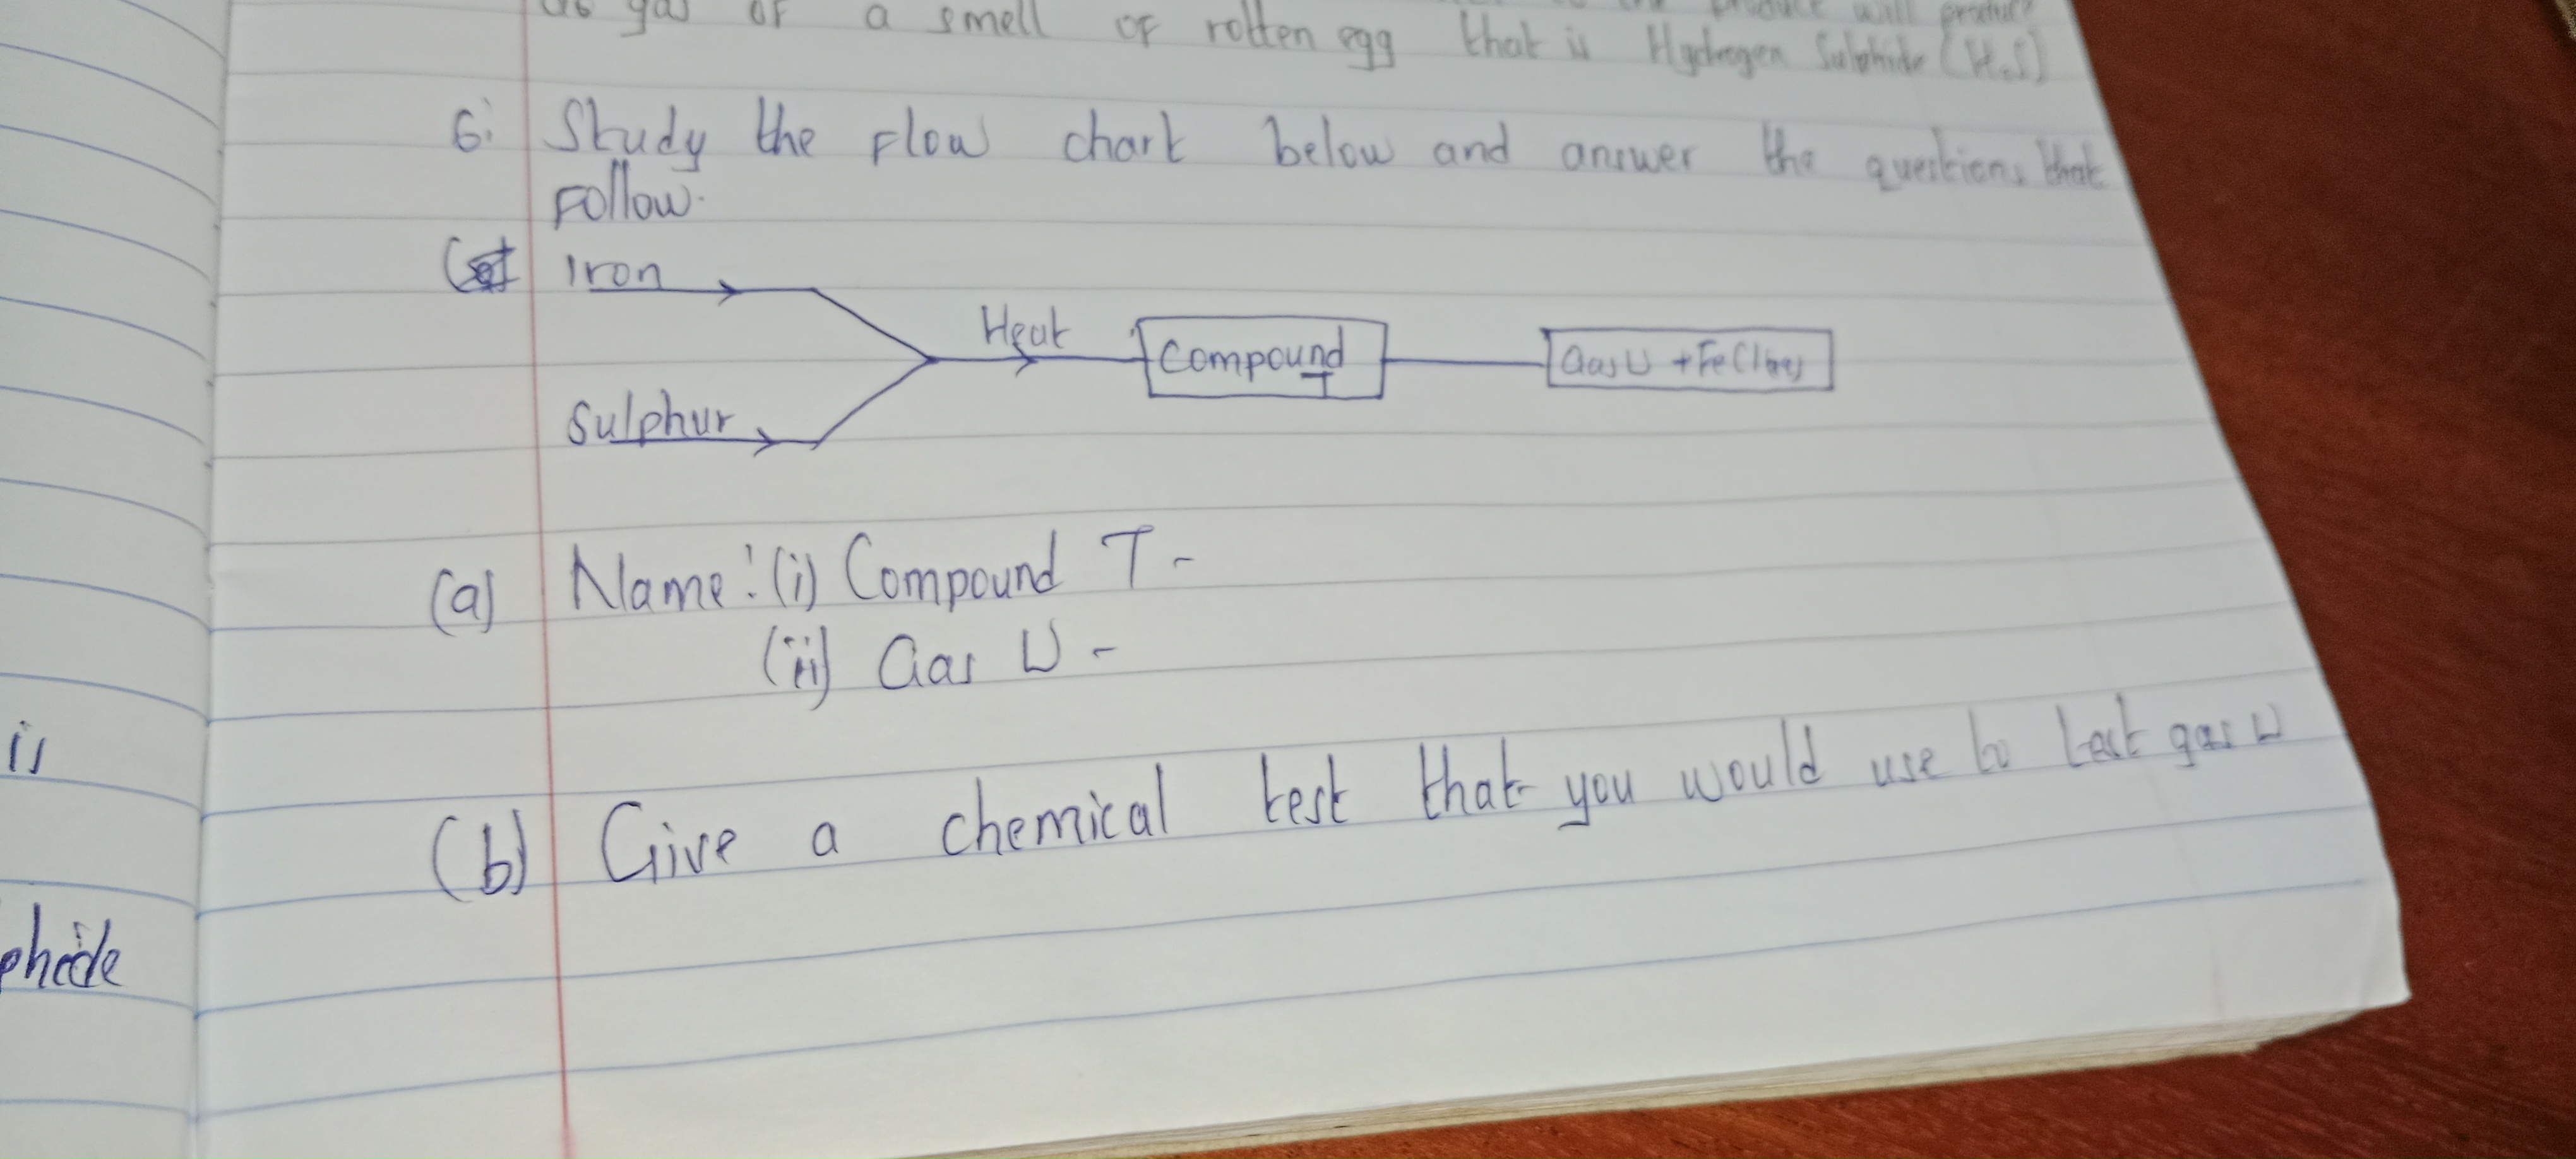 gas of a smell of rotten egg that is Hydrogen Sulphide (H2S)
6. Study the Flow chart below and answer the questions that
Follow.
Iron
Heat
Compound T
Gas U + FeCl2(aq)
Sulphur
(a) Name: (i) Compound T -
(ii) Gas U -
(b) Give a chemical test that you would use to test gas U
is
phide